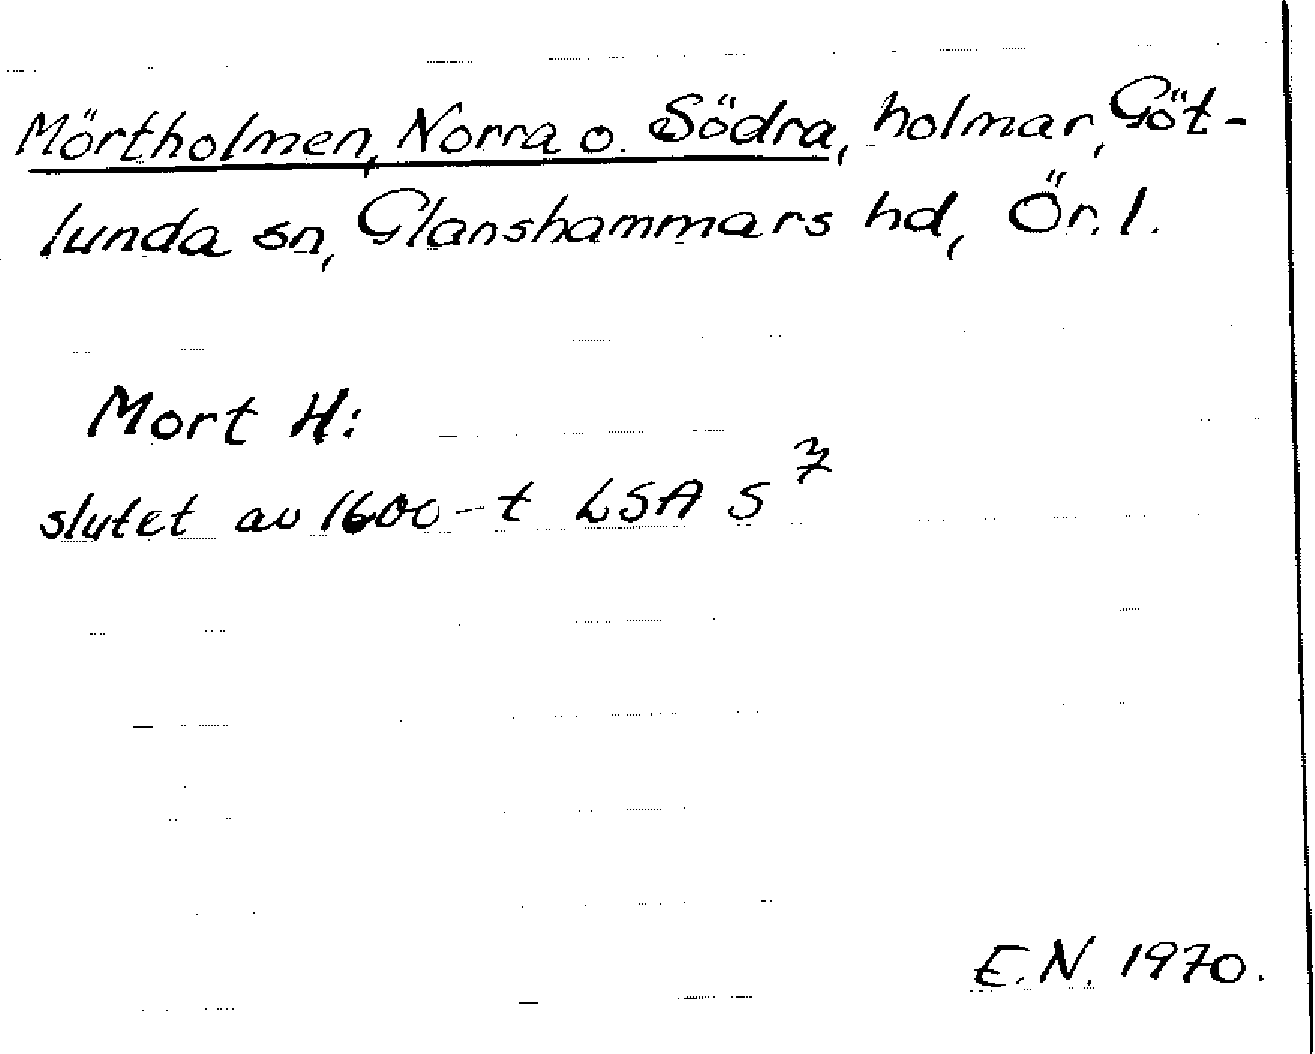 Mörtholmen, Norra o. Södra, holmar, Göt-
lunda sn, Glanshammars hd, Ör. l.
Mort H:
slutet av 1600-t LSA S
E.N. 1970.